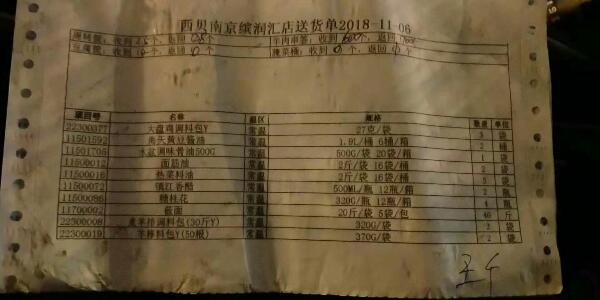 西贝南京缤润汇店送货单2018-11-06
收到 返回 个 羊肉串签：收到 返回
豆腐筐：收到 返回 个 腌菜桶：收到 0 个，返回 0 个
项目号 名称 温区 规格 数量 单位
22300077 大盘鸡调料包Y 常温 27克/袋 3 袋
11501592 黄豆酱油 常温 1.9L/桶 6桶/箱 2 桶
11501706 水盆调味骨油500G 常温 500G/袋 20袋/箱 1 袋
11500012 面筋油 常温 2斤/袋 16袋/桶 2 袋
11500016 热菜料油 常温 2斤/袋 16袋/桶 袋
11500072 镇江香醋 常温 500ML/瓶 12瓶/箱 2 瓶
11500086 糖桂花 常温 320G/瓶 12瓶/箱 4 瓶
11700002 莜面 常温 20斤/袋 5袋/包 40 斤
22300008 调料包(30斤Y) 常温 320G/袋 2 袋
22300019 羊棒料包Y(50根) 常温 370G/袋 2 袋